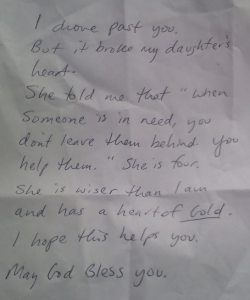 I drove past you.
But it broke my daughter's
heart.
She told me that "when
someone is in need, you
don't leave them behind. You
help them." She is four.
She is wiser than I am
and has a heart of Gold.
I hope this helps you.
May God Bless you.